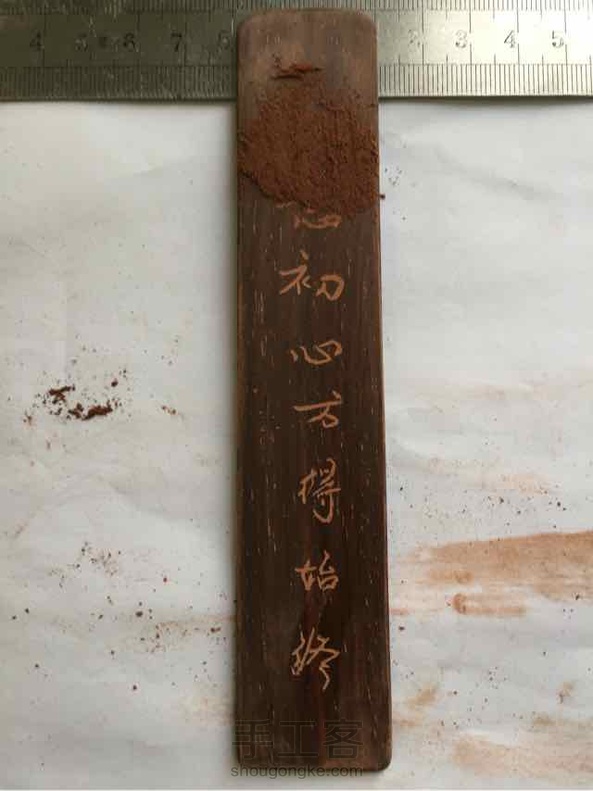 4 5 6 7 8 2 3 4 5
忘初心方得始终
手工客
shougongke.com